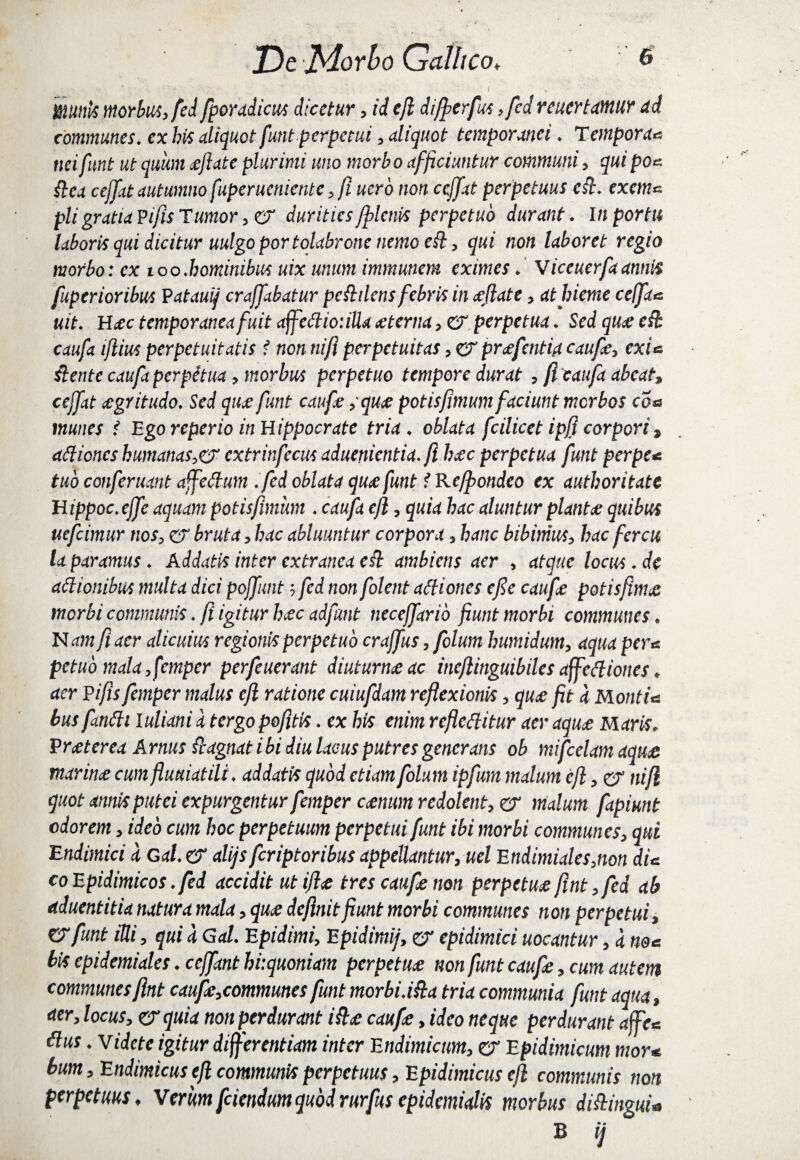 De Morbo Gallico. 6
munis morbus, sed sporadicus dicetur, id est dispersus, sed reuertamur ad
communes. ex his aliquot sunt perpetui, aliquot temporanei. Tempora⸗
nei sunt ut quùm æstate plurimi uno morbo afficiuntur communi, qui po⸗
stea cessat autumno superueniente, si uerò non cessat perpetuus est. exem⸗
pli gratia Pisis Tumor, & durities splenis perpetuò durant. In portu
laboris qui dicitur uulgo portolabrone nemo est, qui non laboret regio
morbo: ex 100.hominibus uix unum immunem eximes. Viceuersa annis
superioribus Patauij crassabatur pestilens febris in æstate, at hieme cessa⸗
uit. Hæc temporanea fuit affectio:illa æterna, & perpetua. Sed quæ est
causa istius perpetuitatis? non nisi perpetuitas, & præsentia causæ, exi⸗
stente causa perpetua, morbus perpetuo tempore durat, si causa abeat,
cessat ægritudo. Sed quæ sunt causæ, quæ potissimum faciunt morbos cō⸗
munes? Ego reperio in Hippocrate tria. oblata scilicet ipsi corpori,
actiones humanas,& extrinsecus aduenientia. si hæc perpetua sunt perpe⸗
tuò conseruant affectum. sed oblata quæ sunt? Respondeo ex authoritate
Hippoc. esse aquam potissimùm. causa est, quia hac aluntur plantæ quibus
uescimur nos, & bruta, hac abluuntur corpora, hanc bibimus, hac fercu
la paramus. Addatis inter extranea est ambiens aer, atque locus. de
actionibus multa dici possunt; sed non solent actiones esse causæ potissimæ
morbi communis. si igitur hæc adsunt necessariò fiunt morbi communes.
Nam si aer alicuius regionis perpetuò crassus, solum humidum, aqua per⸗
petuò mala, semper perseuerant diuturnæ ac inestinguibiles affectiones.
aer Pisis semper malus est ratione cuiusdam reflexionis, quæ fit à Monti⸗
bus sancti Iuliani à tergo positis. ex his enim reflectitur aer aquæ Maris.
Præterea Arnus stagnat ibi diu lacus putres generans ob miscelam aquæ
marinæ cum fluuiatili. addatis quòd etiam solum ipsum malum est, & nisi
quot annis putei expurgentur semper cænum redolent, & malum sapiunt
odorem, ideò cum hoc perpetuum perpetui sunt ibi morbi communes, qui
Endimici à Gal. & alijs scriptoribus appellantur, uel Endimiales,non di⸗
co Epidimicos. sed accidit ut istæ tres causæ non perpetuæ sint, sed ab
aduentitia natura mala, quæ desinit fiunt morbi communes non perpetui,
& sunt illi, qui à Gal. Epidimi, Epidimij, & epidimici uocantur, à no⸗
bis epidemiales. cessant hi:quoniam perpetuæ non sunt causæ, cum autem
communes sint causæ,communes sunt morbi.ista tria communia sunt aqua,
aer, locus, & quia non perdurant istæ causæ, ideo neque perdurant affe⸗
ctus. Videte igitur differentiam inter Endimicum, & Epidimicum mor⸗
bum, Endimicus est communis perpetuus, Epidimicus est communis non
perpetuus. Verùm sciendum quòd rursus epidemialis morbus distingui⸗
B ij